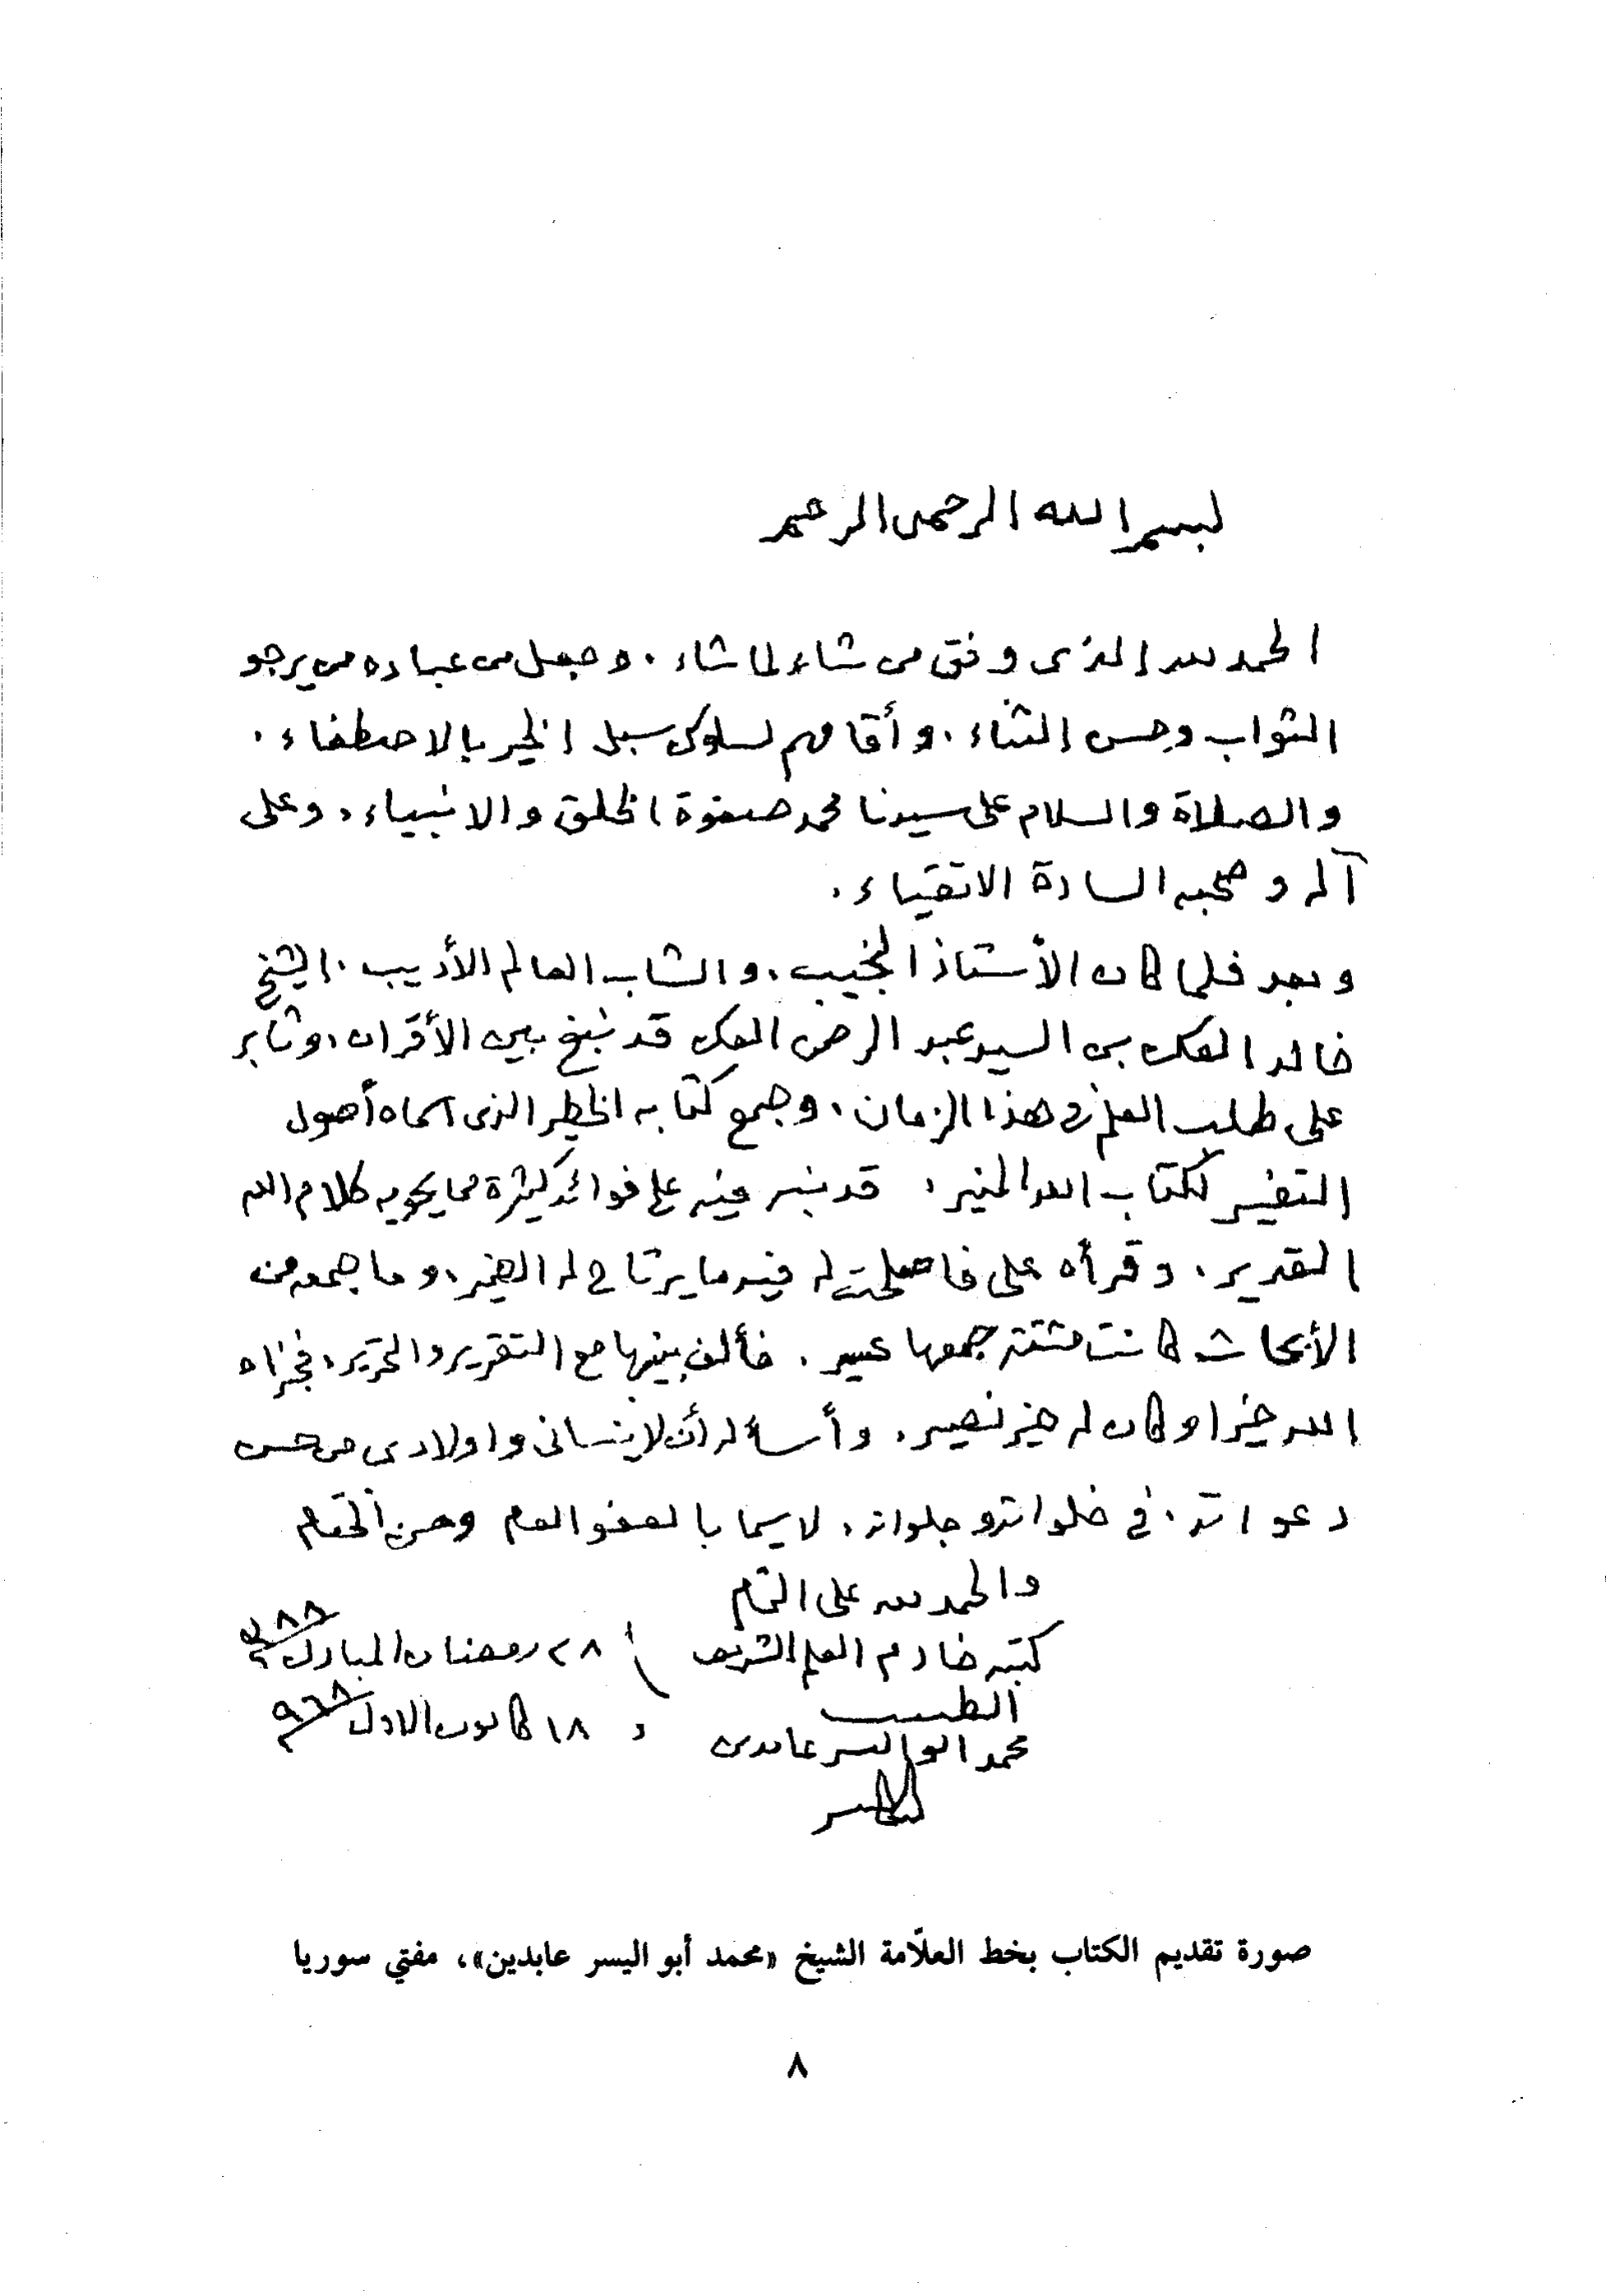 بسم الله الرحمن الرحيم
الحمد لله الذى وفق من شاء لما شاء . وجعل من عباده من يرجو
الثواب وحسن الثناء . وأقامهم لسلوك سبل الخير بالاصطفاء .
والصلاة والسلام على سيدنا محمد صفوة الخلق والانبياء . وعلى
آله وصحبه السادة الاتقياء .
وبعد فلما كان الأستاذ النجيب . والشاب العالم الأديب . الشيخ
خالد العك بن السيد عبد الرحمن العك قد نبغ بين الأقران . وثابر
على طلب العلم في هذا الزمان . وجمع كتابه الخطير الذى اسماه أصول
التفسير لكتاب الله المنير . قد نبه فيه على فوائد كثيرة مما يحويه كلام الله
القدير . وقرأه على فأصلحت له فيه ما يرتاح له الضمير . وما جمعه من
الأبحاث كانت مشتتة جمعها عسير . فألف بينها مع التقرير والتحرير . فجزاه
الله خيرا وكان له خير نصير . وأسأله أن لا ينسانى واولادى من حسن
دعواته . في خلواته وجلواته . لاسيما بالعفو العام وحسن الختام
والحمد لله على التمام
كتبه خادم العلم الشريف ٢٨ رمضان المبارك ٣٨٨
الطبيب
محمد ابو اليسر عابدين و ١٨ كانون الاول ٩٦٨
صورة تقديم الكتاب بخط العلّامة الشيخ «محمد أبو اليسر عابدين»، مفتي سوريا
٨